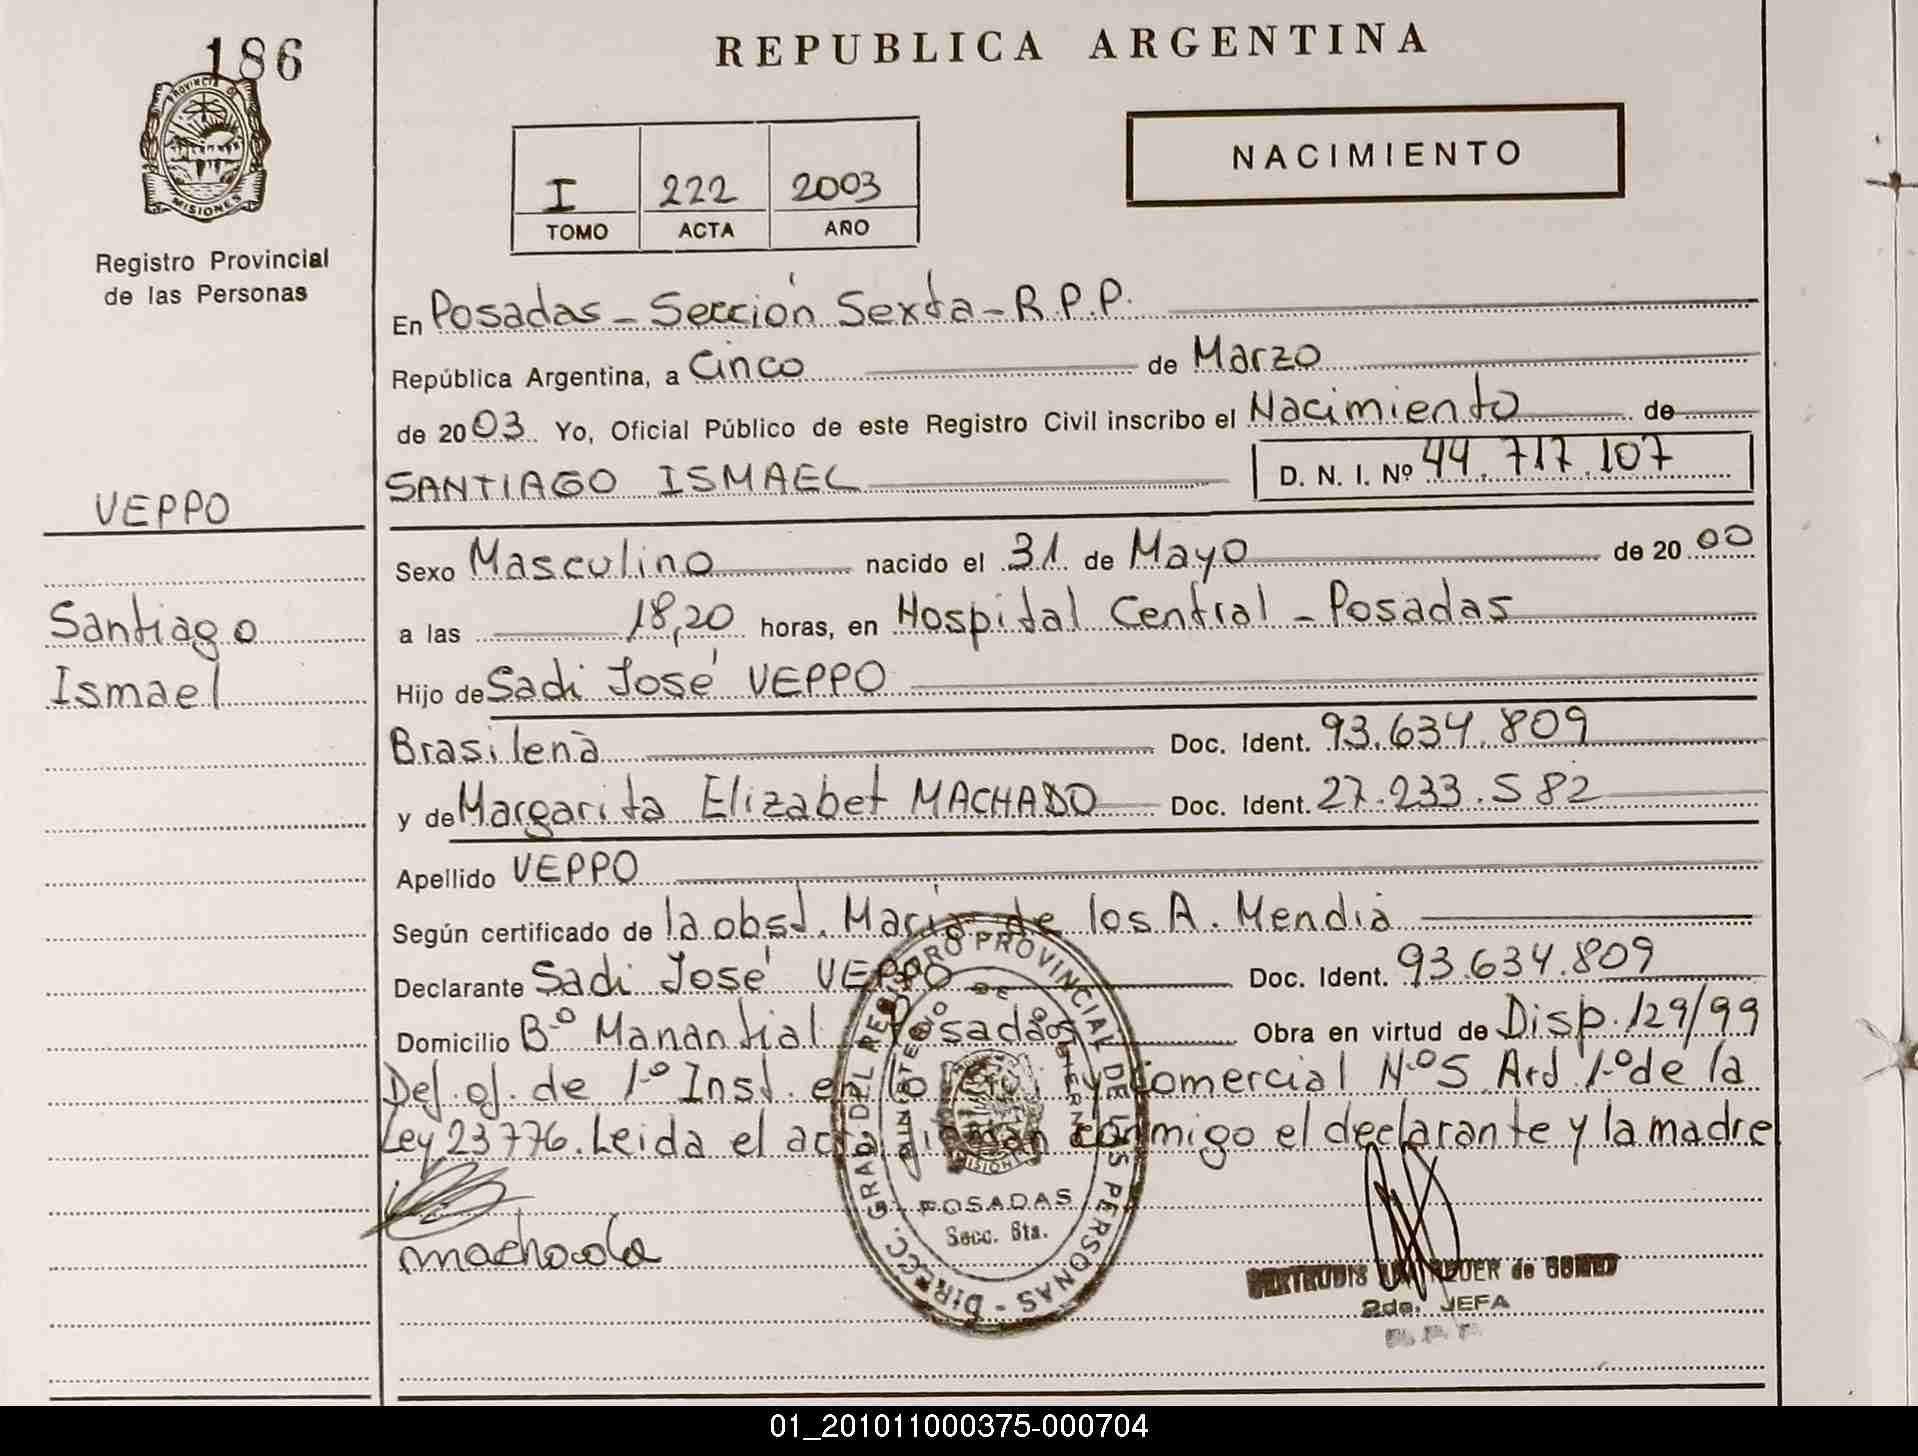 186
REPUBLICA ARGENTINA
PROVINCIA DE
MISIONES
Registro Provincial
de las Personas
NACIMIENTO
I 222 2003
TOMO ACTA AÑO
En Posadas - Sección Sexta - R.P.P.
República Argentina, a Cinco de Marzo
de 2003 Yo, Oficial Público de este Registro Civil inscribo el Nacimiento de
SANTIAGO ISMAEL D. N. I. Nº 44.717.107
VEPPO
Sexo Masculino nacido el 31 de Mayo de 2000
Santiago
Ismael
a las 18,20 horas, en Hospital Central - Posadas
Hijo de Sadi José VEPPO
Brasilena Doc. Ident. 93.634.809
y de Margarita Elizabet MACHADO Doc. Ident. 27.233.582
Apellido VEPPO
Según certificado de la obst. Maria de los A. Mendia
Declarante Sadi José VEPPO Doc. Ident. 93.634.809
Domicilio B.º Manantial Posadas Obra en virtud de Disp. 129/99
de 1.º Inst. en lo y Comercial N.º 5 Art 1.º de la
Ley 23776. Leida el acta firman conmigo el declarante y la madre
DIRECC. GRAL. DEL REGISTRO PROVINCIAL DE LAS PERSONAS -
MINISTERIO DE GOBIERNO
MISIONES
POSADAS
Secc. 6ta.
GERTRUDIS de GOMEZ
2da. JEFA
01_201011000375-000704